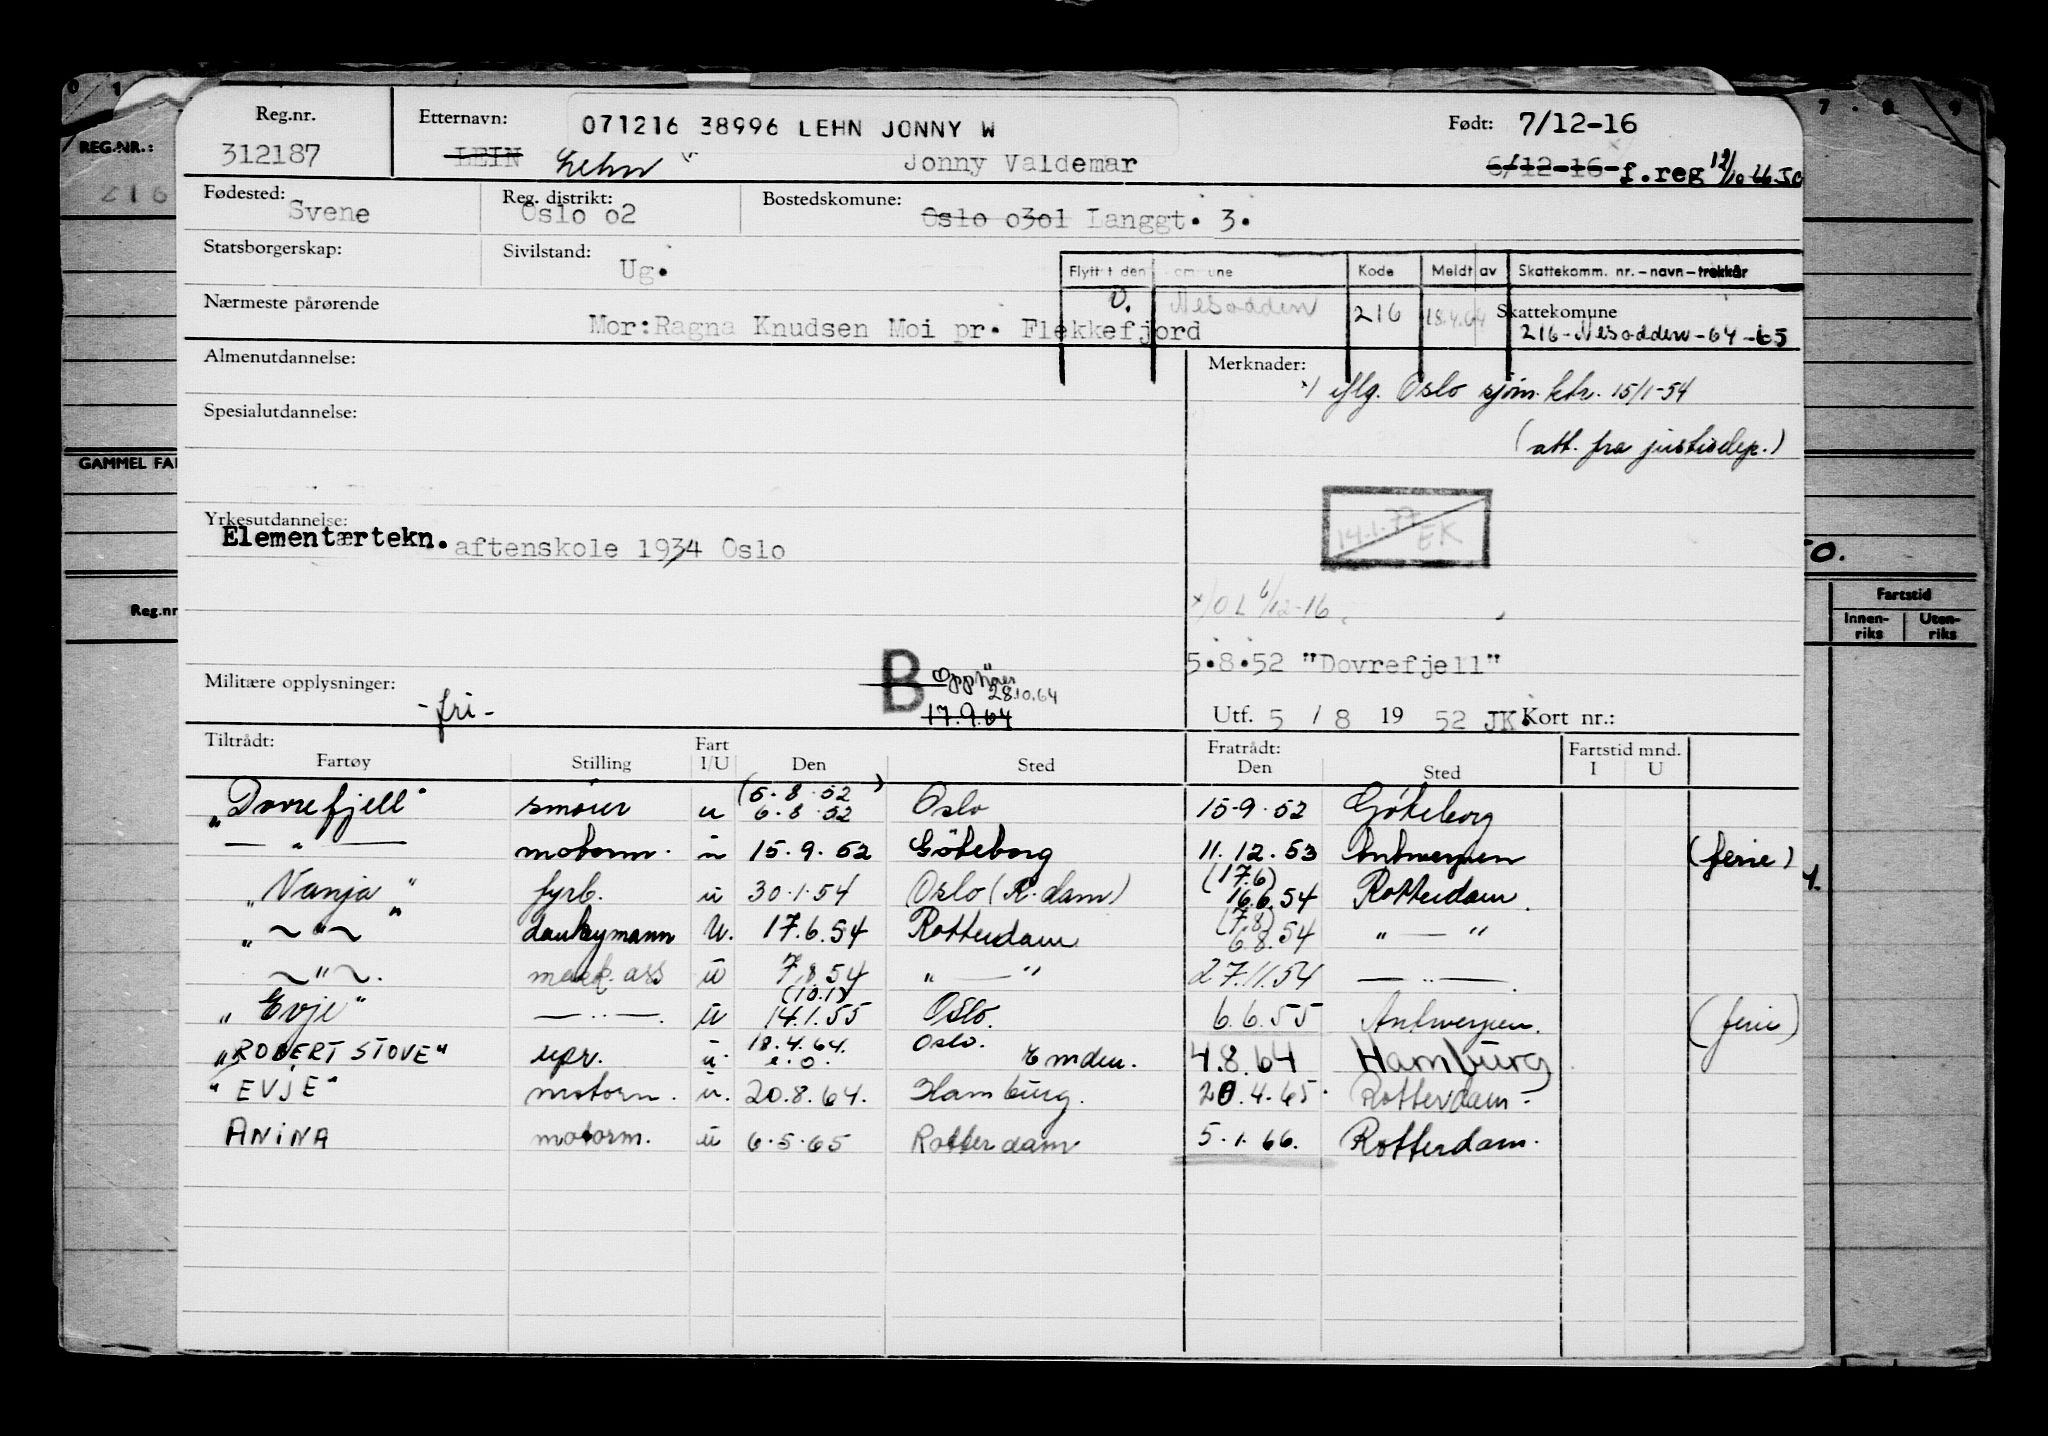 0 1 7 . 8 9
REG.NR.:
216
GAMMEL FA
Reg.nr
50.
Fartstid
Innen-riks Uten-riks
Reg.nr. Etternavn: 071216 38996 LEHN JONNY W Født: 7/12-16
312187 LEIN Lehn Jonny Valdemar 6/12-16 f.reg 12/10-66 JO
Fødested: Svene Reg. distrikt: Oslo o2 Bostedskomune: Oslo o3o1 Langgt. 3.
Statsborgerskap: Sivilstand: Ug.
Flyttet den Kode Meldt av Skattekomm. nr. - navn - trekkår
O. Nesodden 216 18.4.64 Skattekomune
216 - Nesodden - 64 - 65
Nærmeste pårørende Mor:Ragna Knudsen Moi pr. Flekkefjord
Almenutdannelse: Merknader:
x/ iflg. Oslo sjøm.ktr. 15/1-54
(att. fra justisdep.)
Spesialutdannelse:
14.1.77 EK
Yrkesutdannelse:
Elementærtekn. aftenskole 1934 Oslo
x/ OL 6/12-16
5.8.52 "Dovrefjell"
Militære opplysninger: - fri - B Opphør 28.10.64
17.9.64
Utf. 5 / 8 19 52 JK. Kort nr.:
Tiltrådt: Fratrådt: Fartstid mnd.
Fartøy Stilling Fart I/U Den Sted Den Sted I U
(5.8.52)
"Dovrefjell" smører u 6.8.52 Oslo 15.9.52 Göteborg
— " — motorm. u 15.9.52 Göteborg 11.12.53 Antwerpen (ferie)
(17.6)
"Vanja" fyrb. u 30.1.54 Oslo (R.dam) 16.6.54 Rotterdam.
(7.8)
" ~ " ~ " donkeymann U. 17.6.54 Rotterdam 6.8.54 " — "
~ " ~. mask. ass u 7.8.54 " — " 27.11.54 — " —.
(10.1)
"Evje" — " —. u 14.1.55 Oslo. 6.6.55 Antwerpen. (ferie)
"ROBERT STOVE" repr. u. 18.4.64. Oslo. e.o. Emden. 4.8.64 Hamburg
"EVJE" motorm. u. 20.8.64. Hamburg. 20.4.65. Rotterdam.
ANINA motorm. u 6.5.65 Rotterdam 5.1.66. Rotterdam.